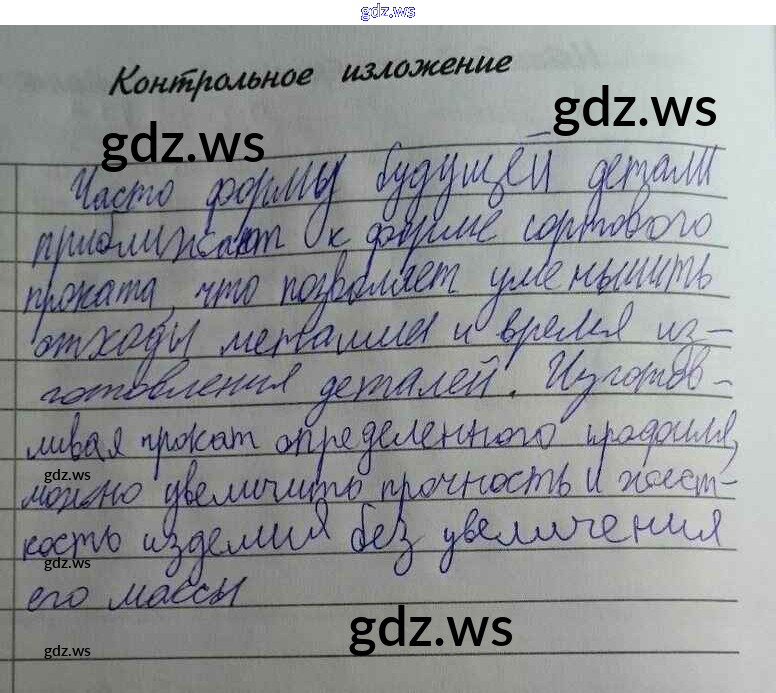 gdz.ws
Контрольное изложение
gdz.ws
gdz.ws
Часто формы будущей детали
приближают к форме сортового
проката, что позволяет уменьшить
отходы металла и время из-
готовления деталей. Изготов-
ливая прокат определенного профиля,
gdz.ws
можно увеличить прочность и жест-
кость изделия без увеличения
gdz.ws
его массы
gdz.ws
gdz.ws